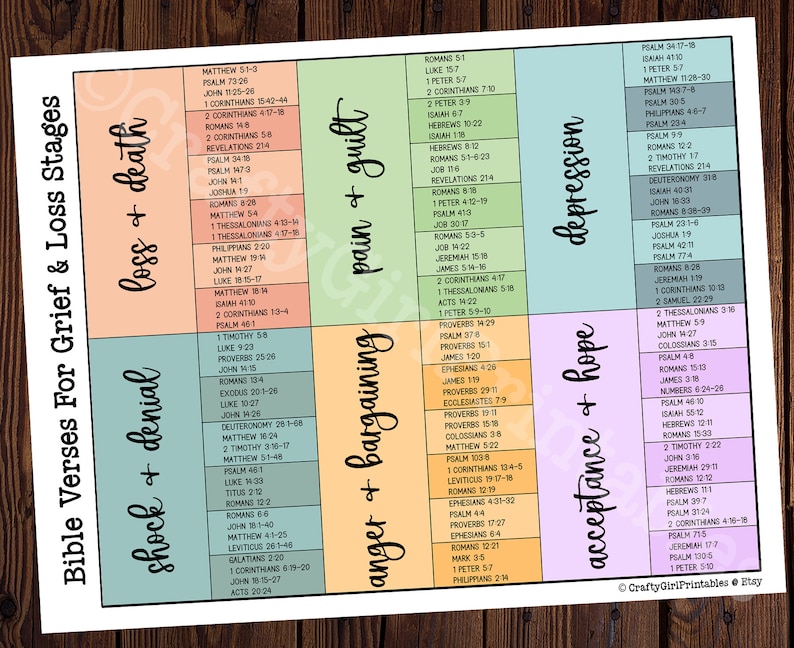 Bible Verses For Grief & Loss Stages
loss + death
MATTHEW 5:1-3
PSALM 73:26
JOHN 11:25-26
1 CORINTHIANS 15:42-44
2 CORINTHIANS 4:17-18
ROMANS 14:8
2 CORINTHIANS 5:8
REVELATIONS 21:4
PSALM 34:18
PSALM 147:3
JOHN 14:1
JOSHUA 1:9
ROMANS 8:28
MATTHEW 5:4
1 THESSALONIANS 4:13-14
1 THESSALONIANS 4:17-18
PHILIPPIANS 2:20
MATTHEW 19:14
JOHN 14:27
LUKE 18:15-17
MATTHEW 18:14
ISAIAH 41:10
2 CORINTHIANS 1:3-4
PSALM 46:1
pain + guilt
ROMANS 5:1
LUKE 15:7
1 PETER 5:7
2 CORINTHIANS 7:10
2 PETER 3:9
ISAIAH 6:7
HEBREWS 10:22
ISAIAH 1:18
HEBREWS 8:12
ROMANS 5:1-6:23
JOB 11:6
REVELATIONS 21:4
ROMANS 8:18
1 PETER 4:12-19
PSALM 41:3
JOB 30:17
ROMANS 5:3-5
JOB 14:22
JEREMIAH 15:18
JAMES 5:14-16
2 CORINTHIANS 4:17
1 THESSALONIANS 5:18
ACTS 14:22
1 PETER 5:9-10
depression
PSALM 34:17-18
ISAIAH 41:10
1 PETER 5:7
MATTHEW 11:28-30
PSALM 143:7-8
PSALM 30:5
PHILIPPIANS 4:6-7
PSALM 23:4
PSALM 9:9
ROMANS 12:2
2 TIMOTHY 1:7
REVELATIONS 21:4
DEUTERONOMY 31:8
ISAIAH 40:31
JOHN 16:33
ROMANS 8:38-39
PSALM 23:1-6
JOSHUA 1:9
PSALM 42:11
PSALM 77:4
ROMANS 8:28
JEREMIAH 1:19
1 CORINTHIANS 10:13
2 SAMUEL 22:29
shock + denial
1 TIMOTHY 5:8
LUKE 9:23
PROVERBS 25:26
JOHN 14:15
ROMANS 13:4
EXODUS 20:1-26
LUKE 10:27
JOHN 14:26
DEUTERONOMY 28:1-68
MATTHEW 16:24
2 TIMOTHY 3:16-17
MATTHEW 5:1-48
PSALM 46:1
LUKE 14:33
TITUS 2:12
ROMANS 12:2
ROMANS 6:6
JOHN 18:1-40
MATTHEW 4:1-25
LEVITICUS 26:1-46
GALATIANS 2:20
1 CORINTHIANS 6:19-20
JOHN 18:15-27
ACTS 20:24
anger + bargaining
PROVERBS 14:29
PSALM 37:8
PROVERBS 15:1
JAMES 1:20
EPHESIANS 4:26
JAMES 1:19
PROVERBS 29:11
ECCLESIASTES 7:9
PROVERBS 19:11
PROVERBS 15:18
COLOSSIANS 3:8
MATTHEW 5:22
PSALM 103:8
1 CORINTHIANS 13:4-5
LEVITICUS 19:17-18
ROMANS 12:19
EPHESIANS 4:31-32
PSALM 4:4
PROVERBS 17:27
EPHESIANS 6:4
ROMANS 12:21
MARK 3:5
1 PETER 5:7
PHILIPPIANS 2:14
acceptance + hope
2 THESSALONIANS 3:16
MATTHEW 5:9
JOHN 14:27
COLOSSIANS 3:15
PSALM 4:8
ROMANS 15:13
JAMES 3:18
NUMBERS 6:24-26
PSALM 46:10
ISAIAH 55:12
HEBREWS 12:11
ROMANS 15:33
2 TIMOTHY 2:22
JOHN 3:16
JEREMIAH 29:11
ROMANS 12:12
HEBREWS 11:1
PSALM 39:7
PSALM 31:24
2 CORINTHIANS 4:16-18
PSALM 71:5
JEREMIAH 17:7
PSALM 130:5
1 PETER 5:10
© CraftyGirlPrintables @ Etsy
©CraftyGirlPrintables